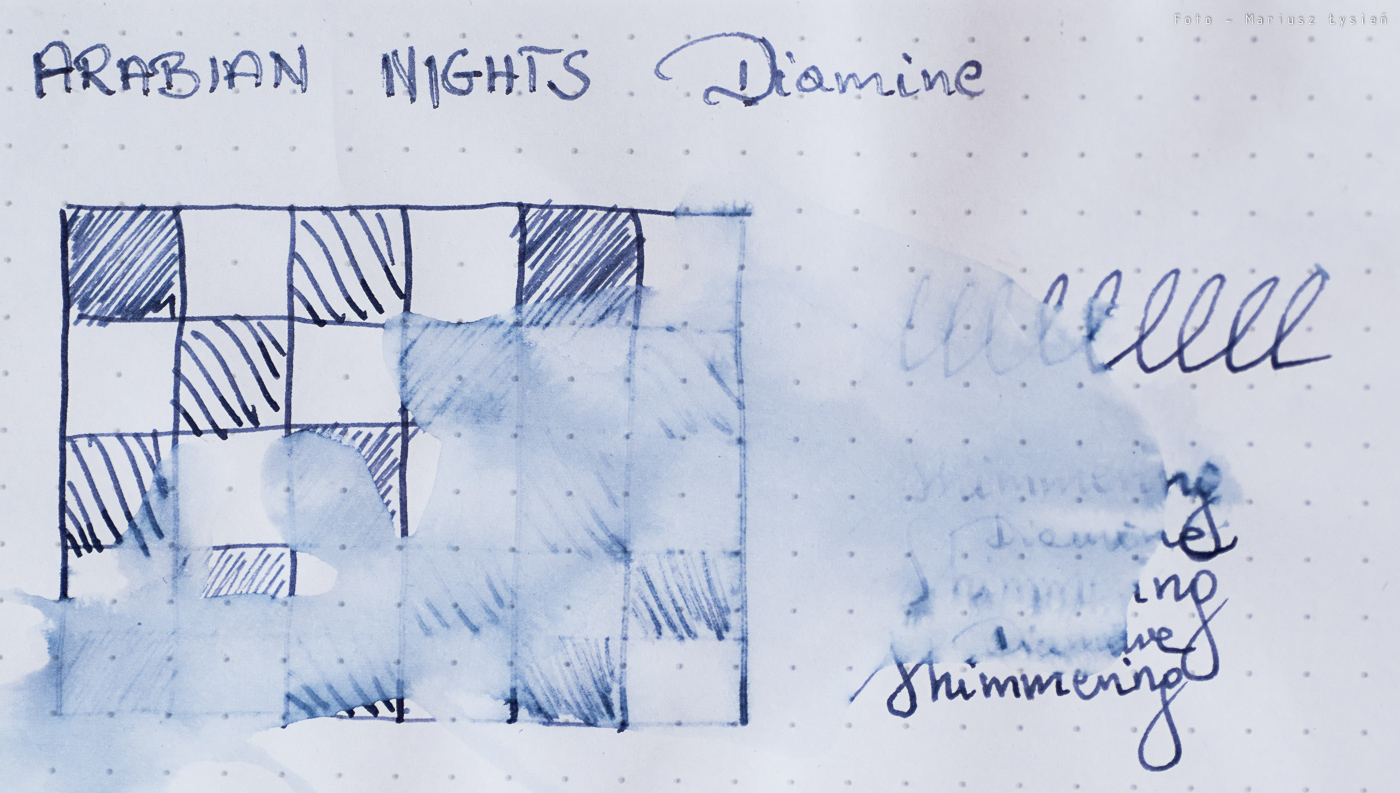 Foto - Mariusz Łysień
ARABIAN NIGHTS Diamine
Shimmering
Diamine
ing
Diamine
Shimmering